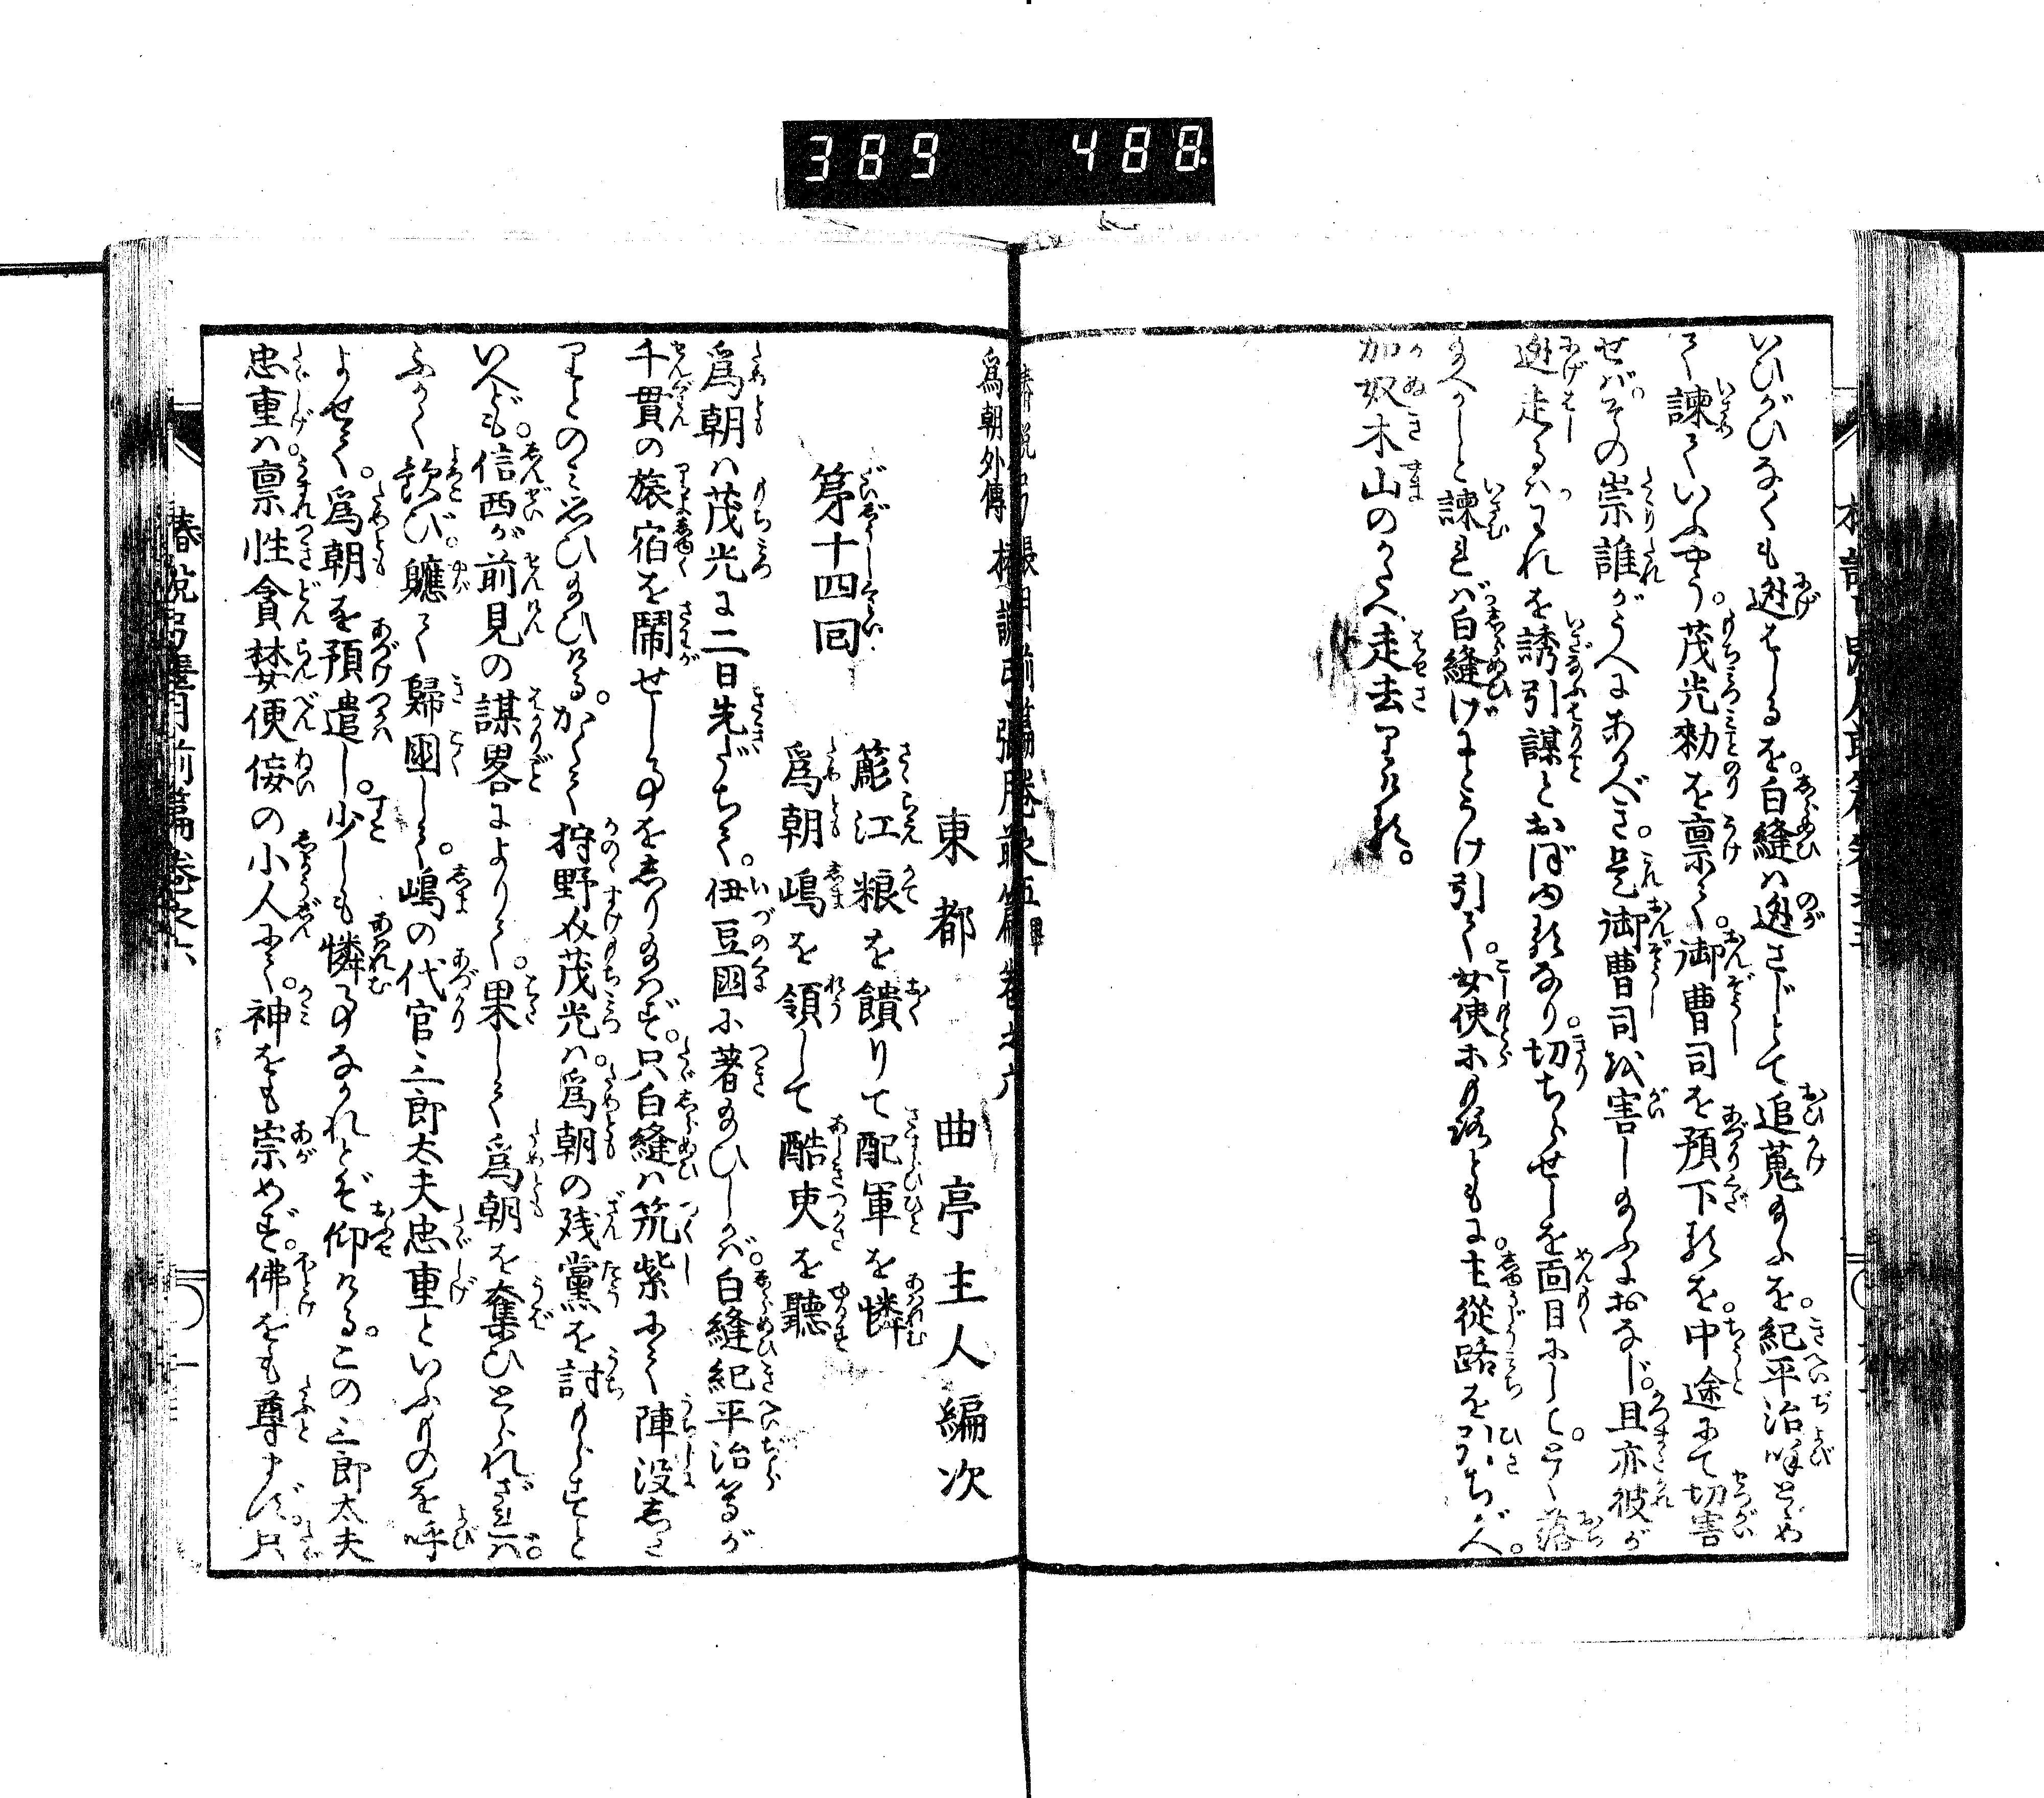 389 488
いひがひなくも迯はしるを。白縫は迯さじとて追蒐給ふを。紀平治呼とゞめ
て諫ていふやう。茂光勅を禀て。御曹司を預下るを。中途にて切害
せば。その祟誰がうへにあるべき。是御曹司を害し給ふにおなじ。且亦彼が
迯走るはわれを誘引謀とおぼゆるなり。切ちらせしを面目にして。とく落
給へかしと諫れば白縫げにとうけ引て。女使ホもろともに。主從路を引ちがへ。
加奴木山のかたへ走去りける。
爲朝外傳 椿説弓張月前篇卷之六
東都 曲亭主人編次
第十四回
簓江粮を饋りて配軍を憐
爲朝嶋を領して酷吏を聽
爲朝は茂光に二日先だちて。伊豆國に著給ひしかば。白縫紀平治等が
千貫の旅宿を鬧せし事をしり給はず。只白縫は筑紫にて陣没しき
りとのみ思ひ給ひける。かくて狩野介茂光は。爲朝の残黨を討もらすと
いへども。信西が前見の謀畧によりて。果して爲朝を奪ひとられざれば。
ふかく歓び。軈て歸國して。嶋の代官三郎太夫忠重といふものを呼
よせて。爲朝を預遣し。少しも憐事なかれとぞ仰ける。この三郎太夫
忠重は禀性貪婪便侫の小人にて。神をも崇めず。佛をも尊まず。只
椿説弓張月前篇卷之六